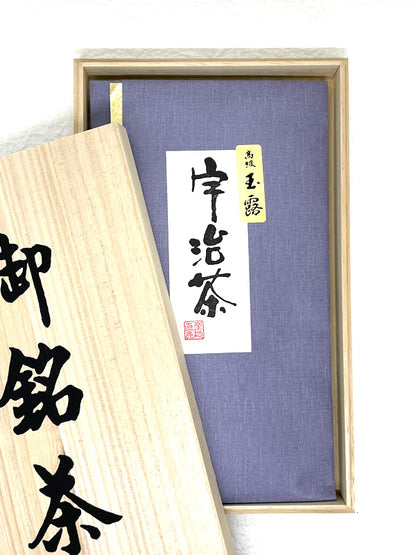 高級
玉露
宇治茶
御銘茶